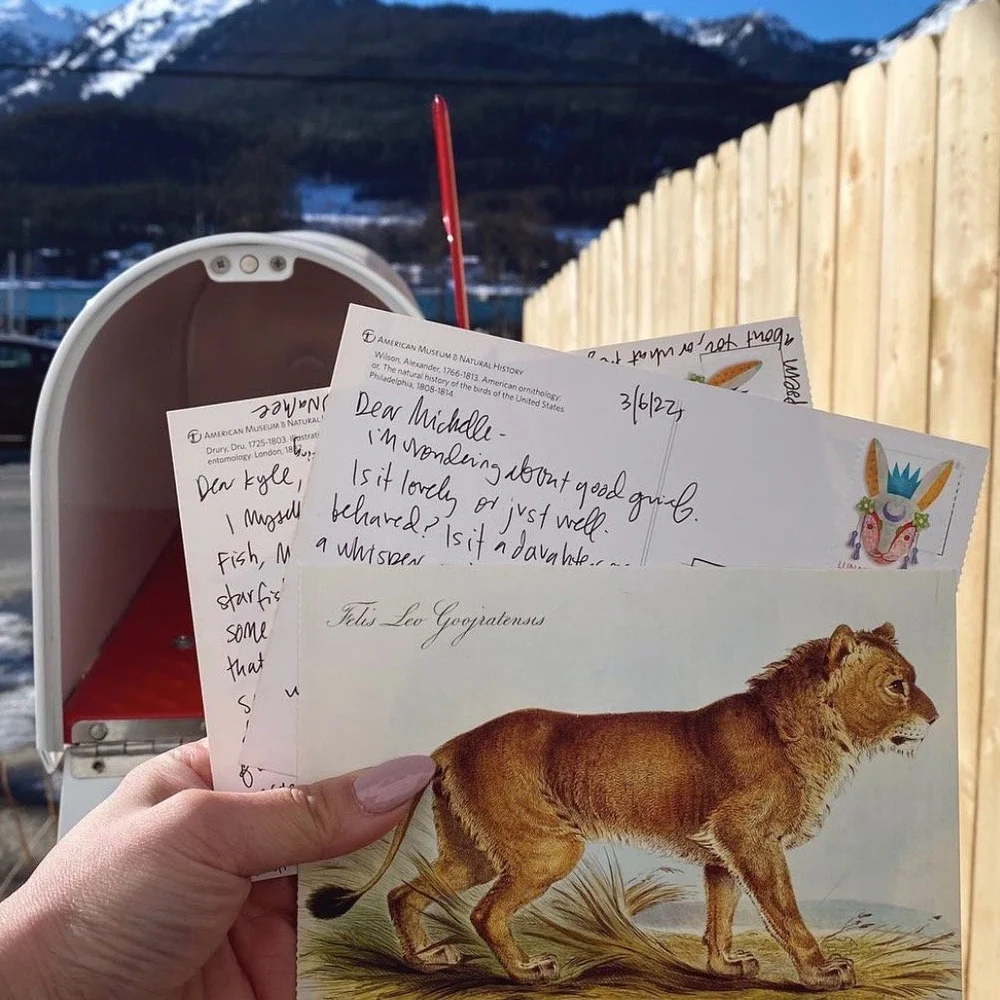 about you, or what
American Museum & Natural History
Wilson, Alexander, 1766-1813. American ornithology;
or, The natural history of the birds of the United States.
Philadelphia, 1808-1814.
3/6/22
Dear Michelle-
i'm wondering about good grief.
Is it lovely or just well
behaved? Is it a daughter
a whisper
American Museum & Natural
Drury, Dru, 1725-1803. Illustrati
entomology. London, 18
Dear Kyle,
I mysel
Fish, M
starfis
some
that
s
Felis Leo Goojratensis